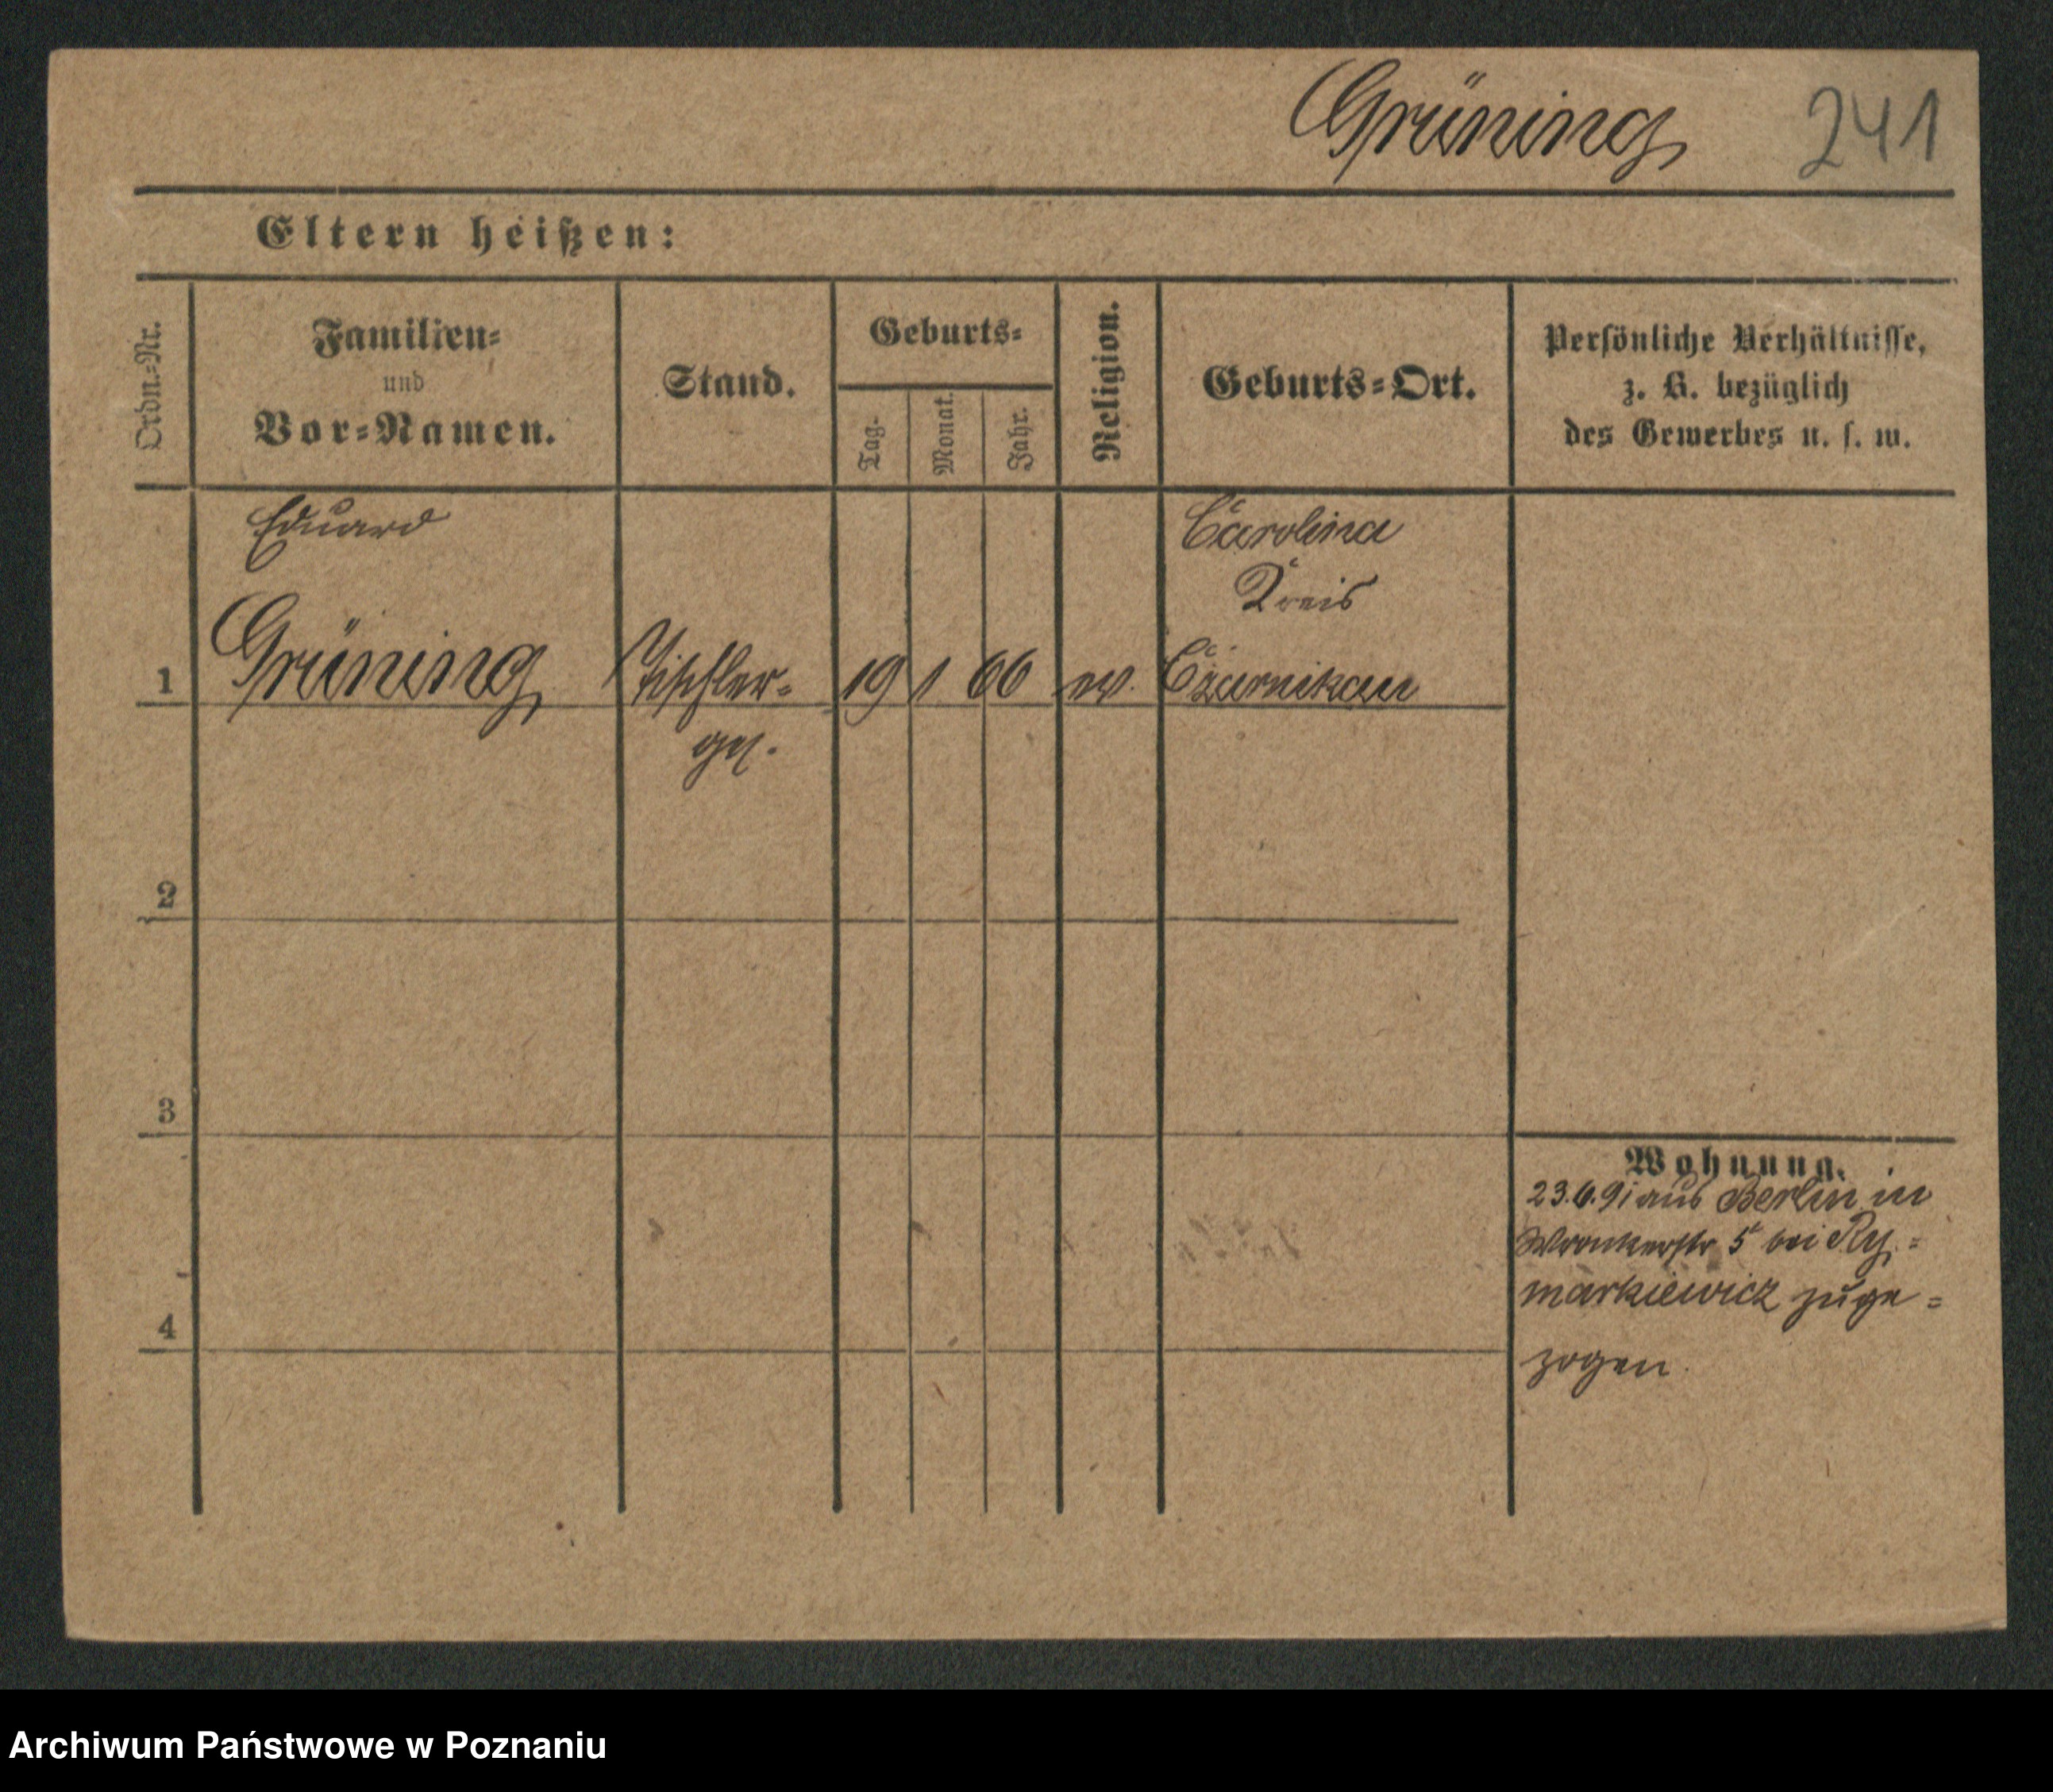 Grüning 241
Eltern heißen:
Ordn.=Nr.
Familien=
und
Vor=Namen.
Stand.
Geburts=
Tag.
Monat.
Jahr.
Religion.
Geburts=Ort.
Persönliche Verhältnisse,
z. B. bezüglich
des Gewerbes u. s. w.
Eduard
Carolina
Kreis
1 Grüning Tischler= 19 1 66 ev. Czarnikau
ges.
2
3
Wohnung.
23.6.91 aus Berlin in
Wronkerstr 5 bei Ry=
markiewicz zuge=
4
zogen.
Archiwum Państwowe w Poznaniu